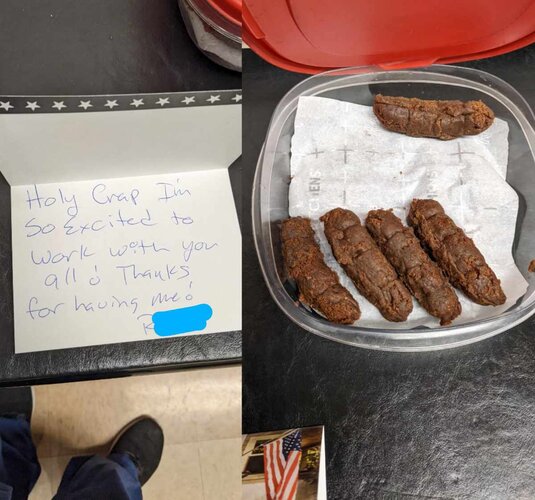 Holy Crap I'm
So excited to
work with you
all! Thanks
for having me!
R
CHENS